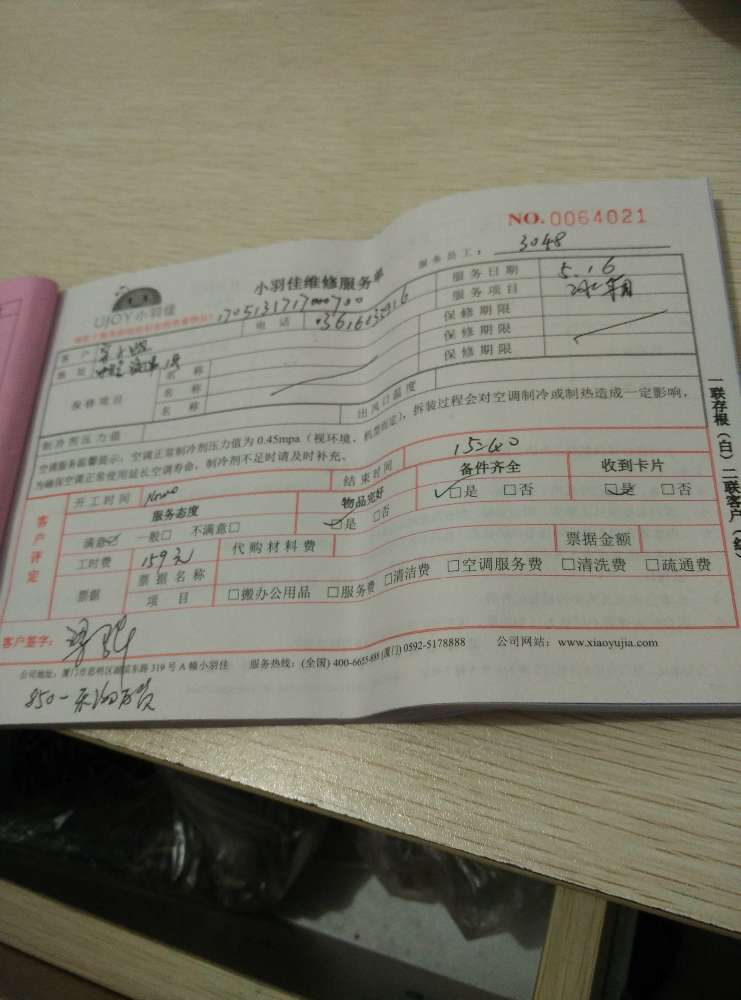 NO. 0064021
小羽佳维修服务单
服务员工： 3048
UJOY小羽佳
电 话
服务日期 5.16
服务项目
客 户
地 址
保修项目
名 称 保修期限
名 称 保修期限
名 称 保修期限
制冷剂压力值 出风口温度
空调服务温馨提示：空调正常制冷剂压力值为 0.45mpa（视环境、机型而定），拆装过程会对空调制冷或制热造成一定影响，
为确保空调正常使用延长空调寿命，制冷剂不足时请及时补充。
客户评定
开工时间 结束时间 15:40
服务态度 物品完好 备件齐全 收到卡片
满意☑ 一般□ 不满意□ ☑是 □否 ☑是 □否 ☑是 □否
工时费 159元 代购材料费 票据金额
票据 票据名称
项 目 □搬办公用品 □服务费 □清洁费 □空调服务费 □清洗费 □疏通费
客户签字：
公司地址：厦门市思明区 东路 319 号 A 幢小羽佳 服务热线：(全国) 400-6655-888 (厦门) 0592-5178888 公司网站：www.xiaoyujia.com
一联存根（白）二联客户（红）